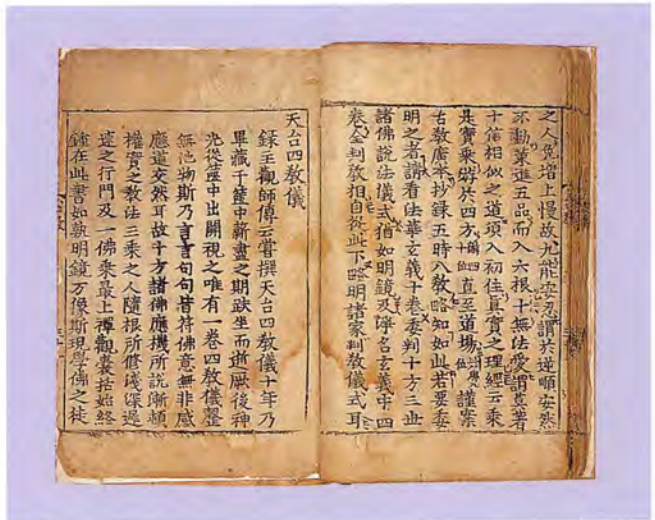 之人免增上慢故九能安忍謂於逆順安然
不動策進五品而入六根十無法愛謂莫着
十信相似之道須入初住真實之理經云乘
是寶乘遊於四方直至道場妙覺位謹案
台教廣本抄錄五時八教略知如此若要委
明之者請看法華玄義十卷委判十方三世
諸佛說法儀式猶如明鏡及淨名玄義中四
卷全判教相自從此下略明諸家判教儀式耳
天台四教儀
錄王觀師傳云嘗撰天台四教儀十年乃
畢藏于篋中薪盡之期趺坐而逝厥後神
光從篋中出開視之唯有一卷四教儀整
無他物斯乃言言句句皆符佛意無非感
應道交然耳故十方諸佛應機所說漸頓
權實之教法三乘之人隨根所修淺深遲
速之行門及一佛乘最上禪觀囊括始終
鍾在此書如執明鏡万像斯現學佛之徒